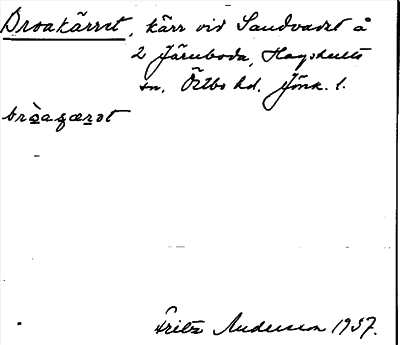 Broakärret, kärr vid Sandvadet å
2 Järnboda, Hagshults
sn, Östbo hd. Jönk. l.
bròaɕærət
Fritz Anderson 1937.